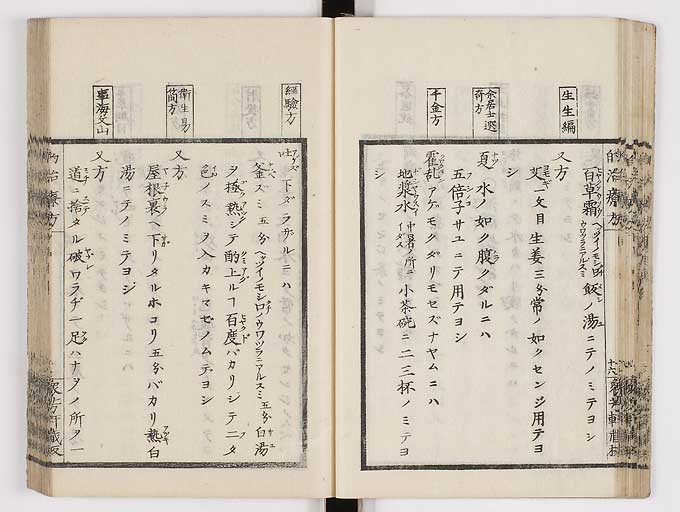 生生編
百草霜ヘッツイノモシロノウワツラニアルスミ飯ノ湯ニテノミテヨシ
又方
艾一文目生姜三分常ノ如クセンジ用テヨ
シ
余居士選奇方
夏水ノ如ク腹クダルニハ
五倍子サユニテ用テヨシ
千金方
霍乱アゲモクダリモセズナヤムニハ
地漿水中暑ノ所ニイダス小茶碗ニ二三杯ノミテヨ
シ
的治療方
経験方
吐下ダラザルニハ
釜ズミ五分ヘッツイノモシロノウワツラニアルスミ五分白湯
ヲ極熱シテ酌上ル丁百度バカリシテ二タ
色ノスミヲ入カキマゼノムテヨシ
衛生易簡方
又方
屋根裏ヘ下リタルホコリ五分バカリ熱白
湯ニテノミテヨシ
又方
道ニ捨タル破ワラヂ一足ハナヲノ所ヲ一
的治療方